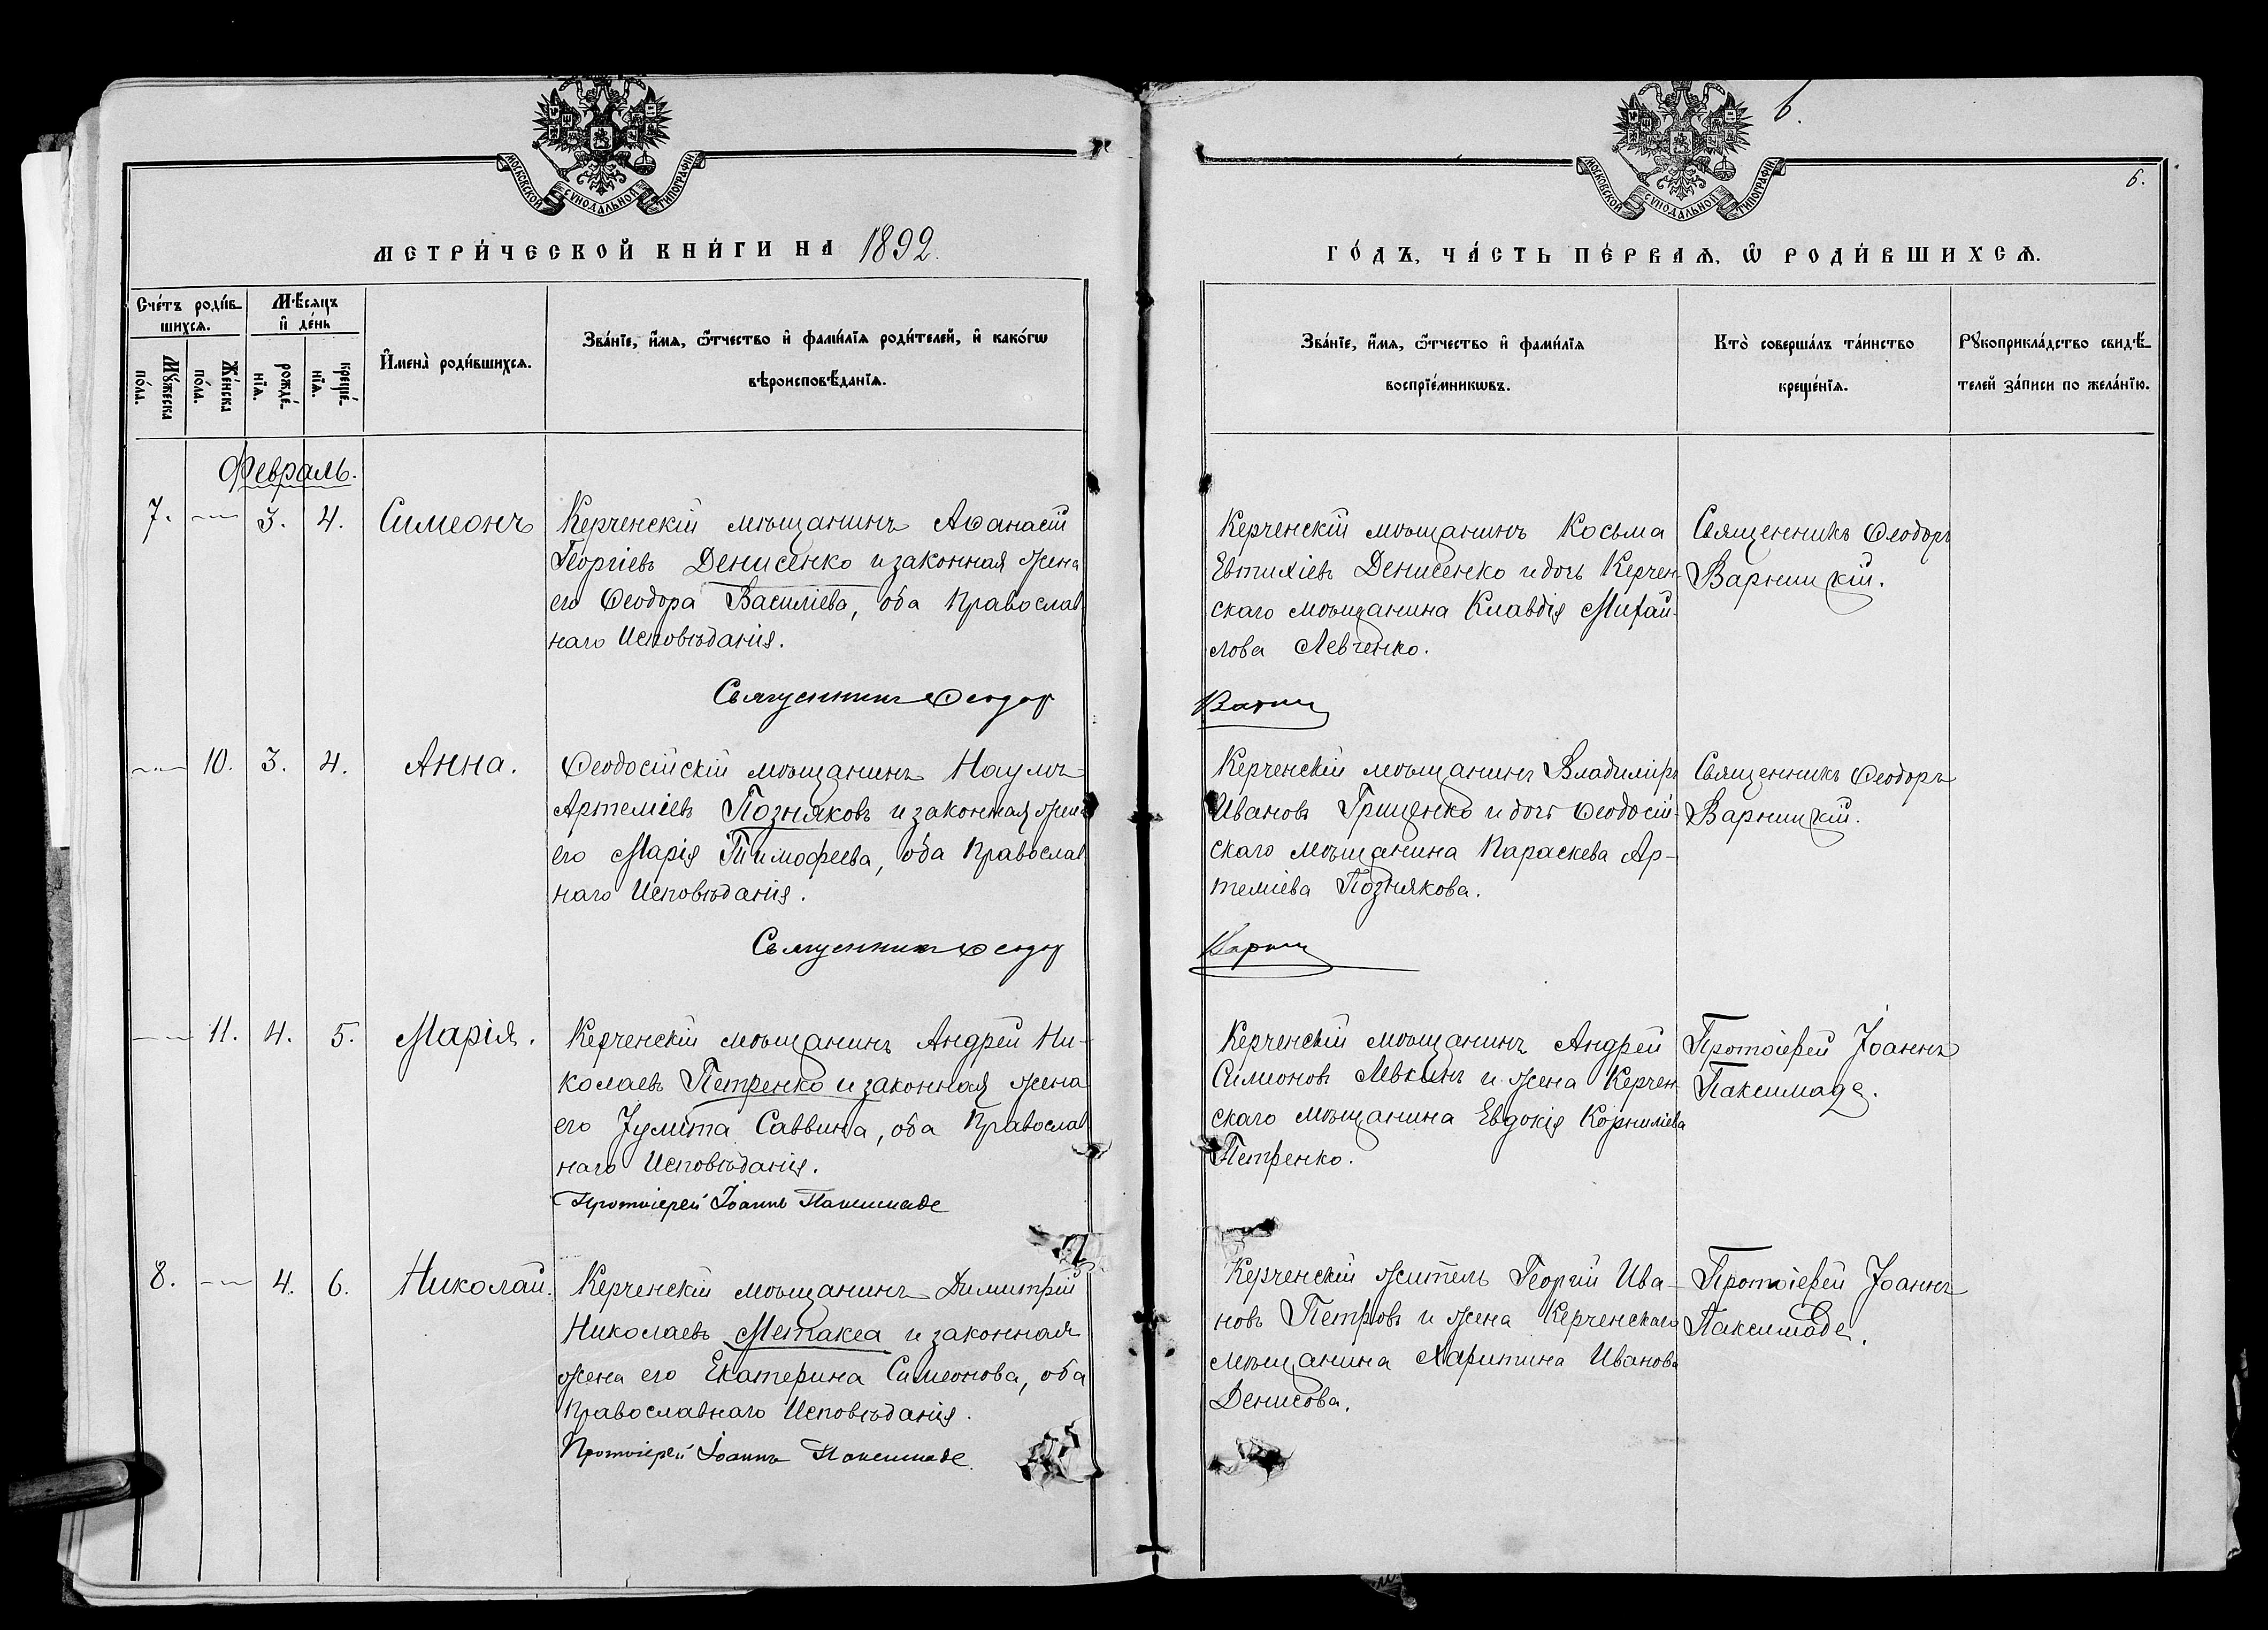 МОСКОВСКОЙ СѴНОДАЛЬНОЙ ТИПОГРАФІИ
МЕТРИ́ЧЕСКОЙ КНИ́ГИ НА 1892.
Сче́тъ роди́в-
шихсѧ.
Мѣ́сѧцъ
и҆ де́нь
Мꙋ́жеска
по́ла.
Же́нска
по́ла.
рожде́-
нїѧ.
креще́-
нїѧ.
И҆мена̀ роди́вшихсѧ.
Зва́нїе, и҆́мѧ, ѻ҆́тчество и҆ фами́лїѧ роди́телей, и҆ како́гѡ
вѣроисповѣ́данїѧ.
Февраль.
7. — 3. 4. Симеонъ
Керченскій мѣщанинъ Аѳанасій
Георгіевъ Денисенко и законная жена
его Ѳеодора Василіева, оба Православ
наго Исповѣданія.
Священникъ Ѳеодор
— 10. 3. 4. Анна.
Ѳеодосійскій мѣщанинъ Наумъ
Артеміевъ Позняковъ и законная жена
его Марія Тимофеева, оба Православ
наго Исповѣданія.
Священникъ Ѳеодор
— 11. 4. 5. Марія.
Керченскій мѣщанинъ Андрей Ни-
колаевъ Петренко и законная жена
его Іулита Саввина, оба Православ
наго Исповѣданія.
Протоіерей Іоаннъ Паксимаде
8. — 4. 6. Николай.
Керченскій мѣщанинъ Димитрій
Николаевъ Метакса и законная
жена его Екатерина Симеонова, оба
Православнаго Исповѣданія.
Протоіерей Іоаннъ Паксимаде
6.
МОСКОВСКОЙ СѴНОДАЛЬНОЙ ТИПОГРАФІИ
6.
ГО́ДЪ, ЧА́СТЬ ПЕ́РВАѦ, Ѡ҆ РОДИ́ВШИХСѦ.
Зва́нїе, и҆́мѧ, ѻ҆́тчество и҆ фами́лїѧ
воспрїе́мникѡвъ.
Кто̀ соверша́лъ та́инство
креще́нїѧ.
Рꙋкоприкла́дство свидѣ́-
телей за́писи по жела́нїю.
Керченскій мѣщанинъ Косьма
Евтихіевъ Денисенко и дочь Керчен-
скаго мѣщанина Клавдія Михай-
лова Левченко.
Священникъ Ѳеодоръ
Варницкій.
Варниц
Керченскій мѣщанинъ Владиміръ
Ивановъ Гриценко и дочь Ѳеодосій-
скаго мѣщанина Параскева Ар-
теміева Познякова.
Священникъ Ѳеодоръ
Варницкій.
Варниц
Керченскій мѣщанинъ Андрей
Симеоновъ Левкинъ и жена Керчен-
скаго мѣщанина Евдокія Корниліева
Петренко.
Протоіерей Іоаннъ
Паксимаде.
Керченскій житель Георгій Ива-
новъ Петровъ и жена Керченскаго
мѣщанина Харитина Иванова
Денисова.
Протоіерей Іоаннъ
Паксимаде.